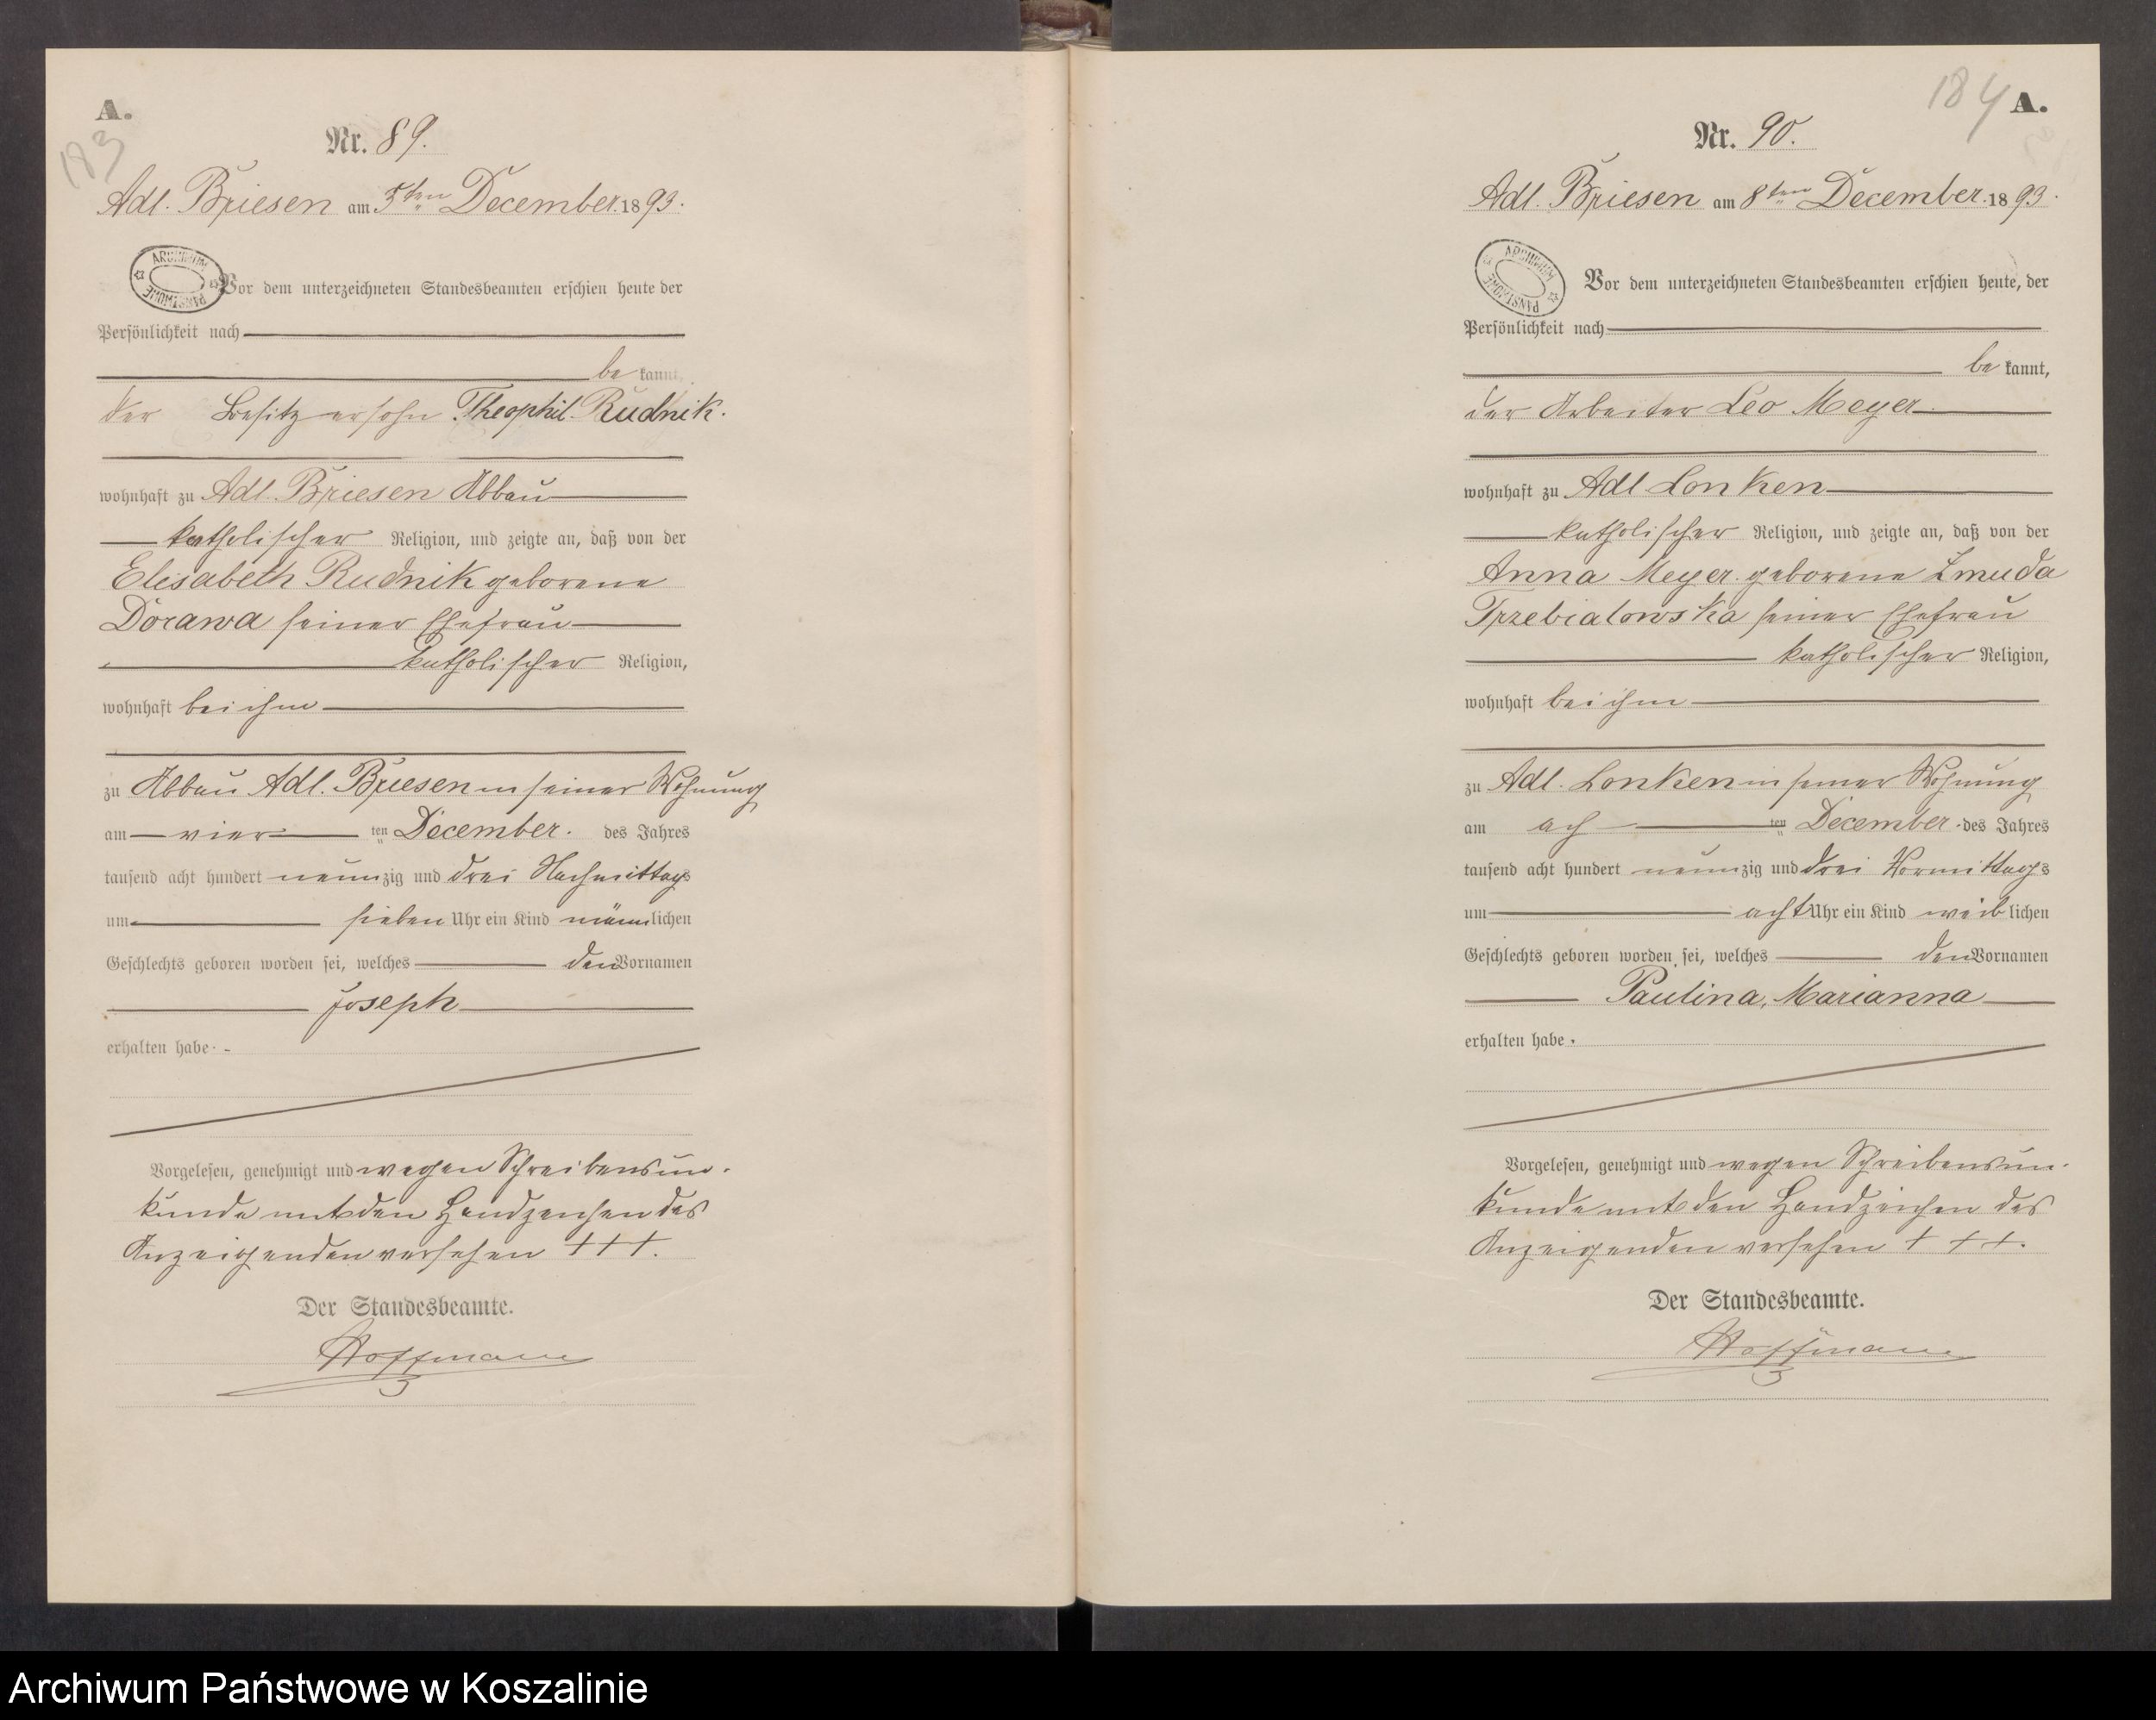 A.
183
Nr. 89.
Adl. Briesen am 5ten December 1893.
ARCHIWUM PAŃSTWOWE
Vor dem unterzeichneten Standesbeamten erschien heute der
Persönlichkeit nach
bekannt,
der Besitzersohn Theophil Rudnik.
wohnhaft zu Adl. Briesen Abbau
katholischer Religion, und zeigte an, daß von der
Elisabeth Rudnik geborene
Dorawa seiner Ehefrau
katholischer Religion,
wohnhaft bei ihm
zu Abbau Adl. Briesen in seiner Wohnung
am vier ten December. des Jahres
tausend acht hundert neunzig und drei Nachmittags
um sieben Uhr ein Kind männlichen
Geschlechts geboren worden sei, welches den Vornamen
Joseph
erhalten habe. -
Vorgelesen, genehmigt und wegen Schreibensun-
kunde mit den Handzeichen des
Anzeigenden versehen +++.
Der Standesbeamte.
Hoffmann
184
A.
Nr. 90.
Adl. Briesen am 8ten December 1893.
ARCHIWUM PAŃSTWOWE
Vor dem unterzeichneten Standesbeamten erschien heute, der
Persönlichkeit nach
bekannt,
der Arbeiter Leo Meyer
wohnhaft zu Adl Lonken
katholischer Religion, und zeigte an, daß von der
Anna Meyer geborene Zmuda
Trzebiatowska seiner Ehefrau
katholischer Religion,
wohnhaft bei ihm
zu Adl. Lonken in seiner Wohnung
am ach ten December des Jahres
tausend acht hundert neunzig und drei Vormittags
um acht Uhr ein Kind weiblichen
Geschlechts geboren worden sei, welches den Vornamen
Paulina, Marianna
erhalten habe.
Vorgelesen, genehmigt und wegen Schreibensun-
kunde mit den Handzeichen des
Anzeigenden versehen +++.
Der Standesbeamte.
Hoffmann
Archiwum Państwowe w Koszalinie